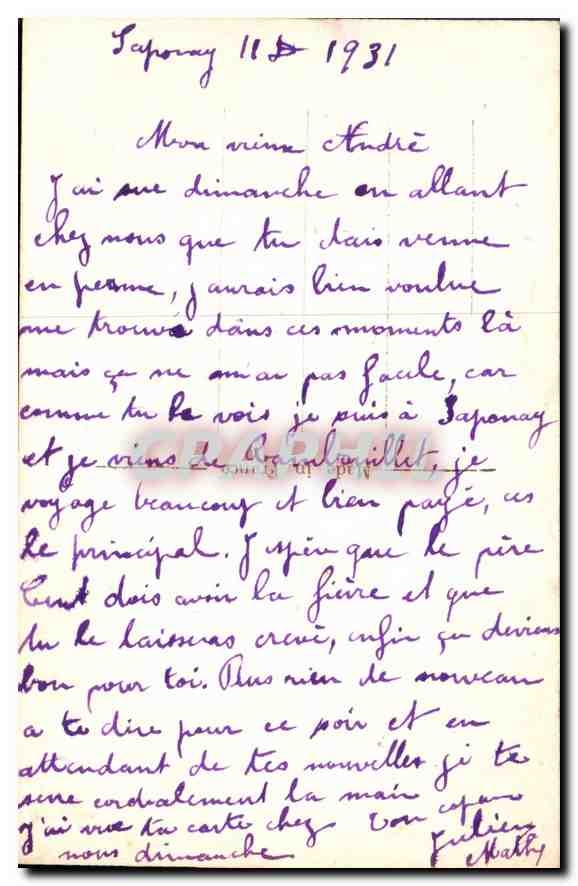 Saponay 11 D 1931
Mon vieux André
J'ai sue dimanche en allant
chez nous que tu étais venue
en perme, j'aurais bien voulue
me trouvé dans ces moments là
mais ça ne pas facile, car
comme tu le vois je suis à Saponay
et je viens de Rambouillet, je
Made in France
voyage beaucoup et bien payé, ces
le principal. J'espère que le père
dois avoir la fièvre et que
tu le laisseras crevé, enfin ça deviens
bon pour toi. Plus rien de nouveau
a te dire pour ce soir et en
attendant de tes nouvelles je te
serre cordialement la main
Ton copain
J'ai vue ta carte chez
nous dimanche
Julien
Mathy